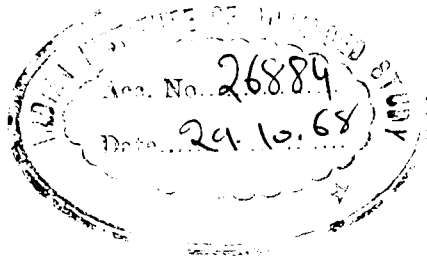 INDIAN INSTITUTE OF ADVANCED STUDY
Acc. No. 26884
Date 29.10.68